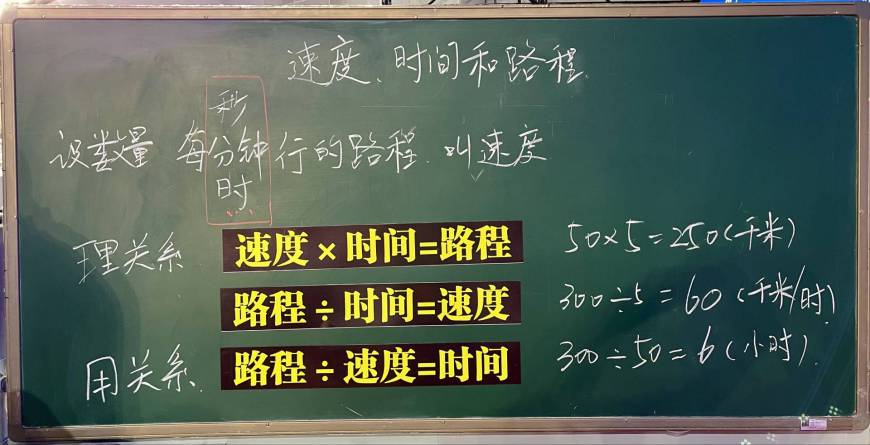 速度、时间和路程
秒
设数量 每分钟行的路程 叫速度
时
理关系 速度×时间=路程 50×5=250(千米)
路程÷时间=速度 300÷5=60(千米/时)
用关系 路程÷速度=时间 300÷50=6(小时)